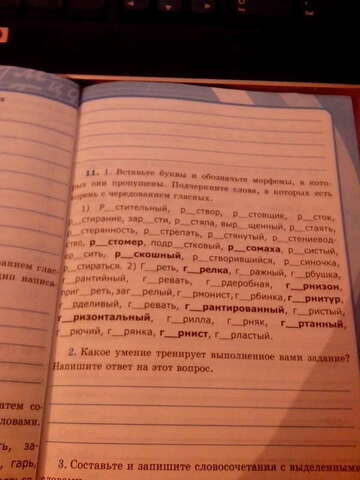 11. 1. Вставьте буквы и обозначьте морфемы, в кото-
рых они пропущены. Подчеркните слова, в которых есть
корень с чередованием гласных.
1) Р__стительный, р__створ, р__стовщик, р__сток,
р__стирание, зар__сти, р__стяпа, выр__щенный, р__стаять,
р__стерянность, р__стрепать, р__стянутый, р__стениевод-
ство, р__стомер, подр__стковый, р__сомаха, р__систый,
р__сить, р__скошный, р__створившийся, р__синочка,
р__стираться. 2) Г__реть, г__релка, г__ражный, г__рбушка,
г__рантийный, г__ревать, г__рдеробная, г__рнизон,
приг__реть, заг__релый, г__рмонист, г__рбинка, г__рнитур,
г__рделивый, г__ревать, г__рантированный, г__ристый,
г__ризонтальный, г__рилла, г__рняк, г__ртанный,
г__рючий, г__рянка, г__рнист, г__рластый.
2. Какое умение тренирует выполненное вами задание?
Напишите ответ на этот вопрос.
3. Составьте и запишите словосочетания с выделенными
словами.